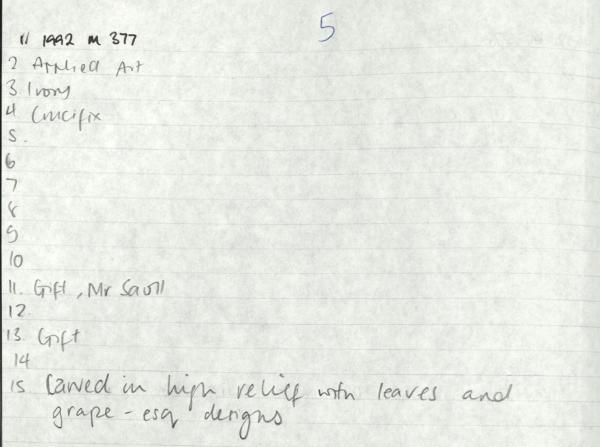 5
1/ 1992 M 377
2 Applied Art
3 Ivory
4 Crucifix
5.
6
7
8
9
10
11. Gift, Mr
12.
13. Gift
14
15 Carved in high relief with leaves and
grape-esq designs